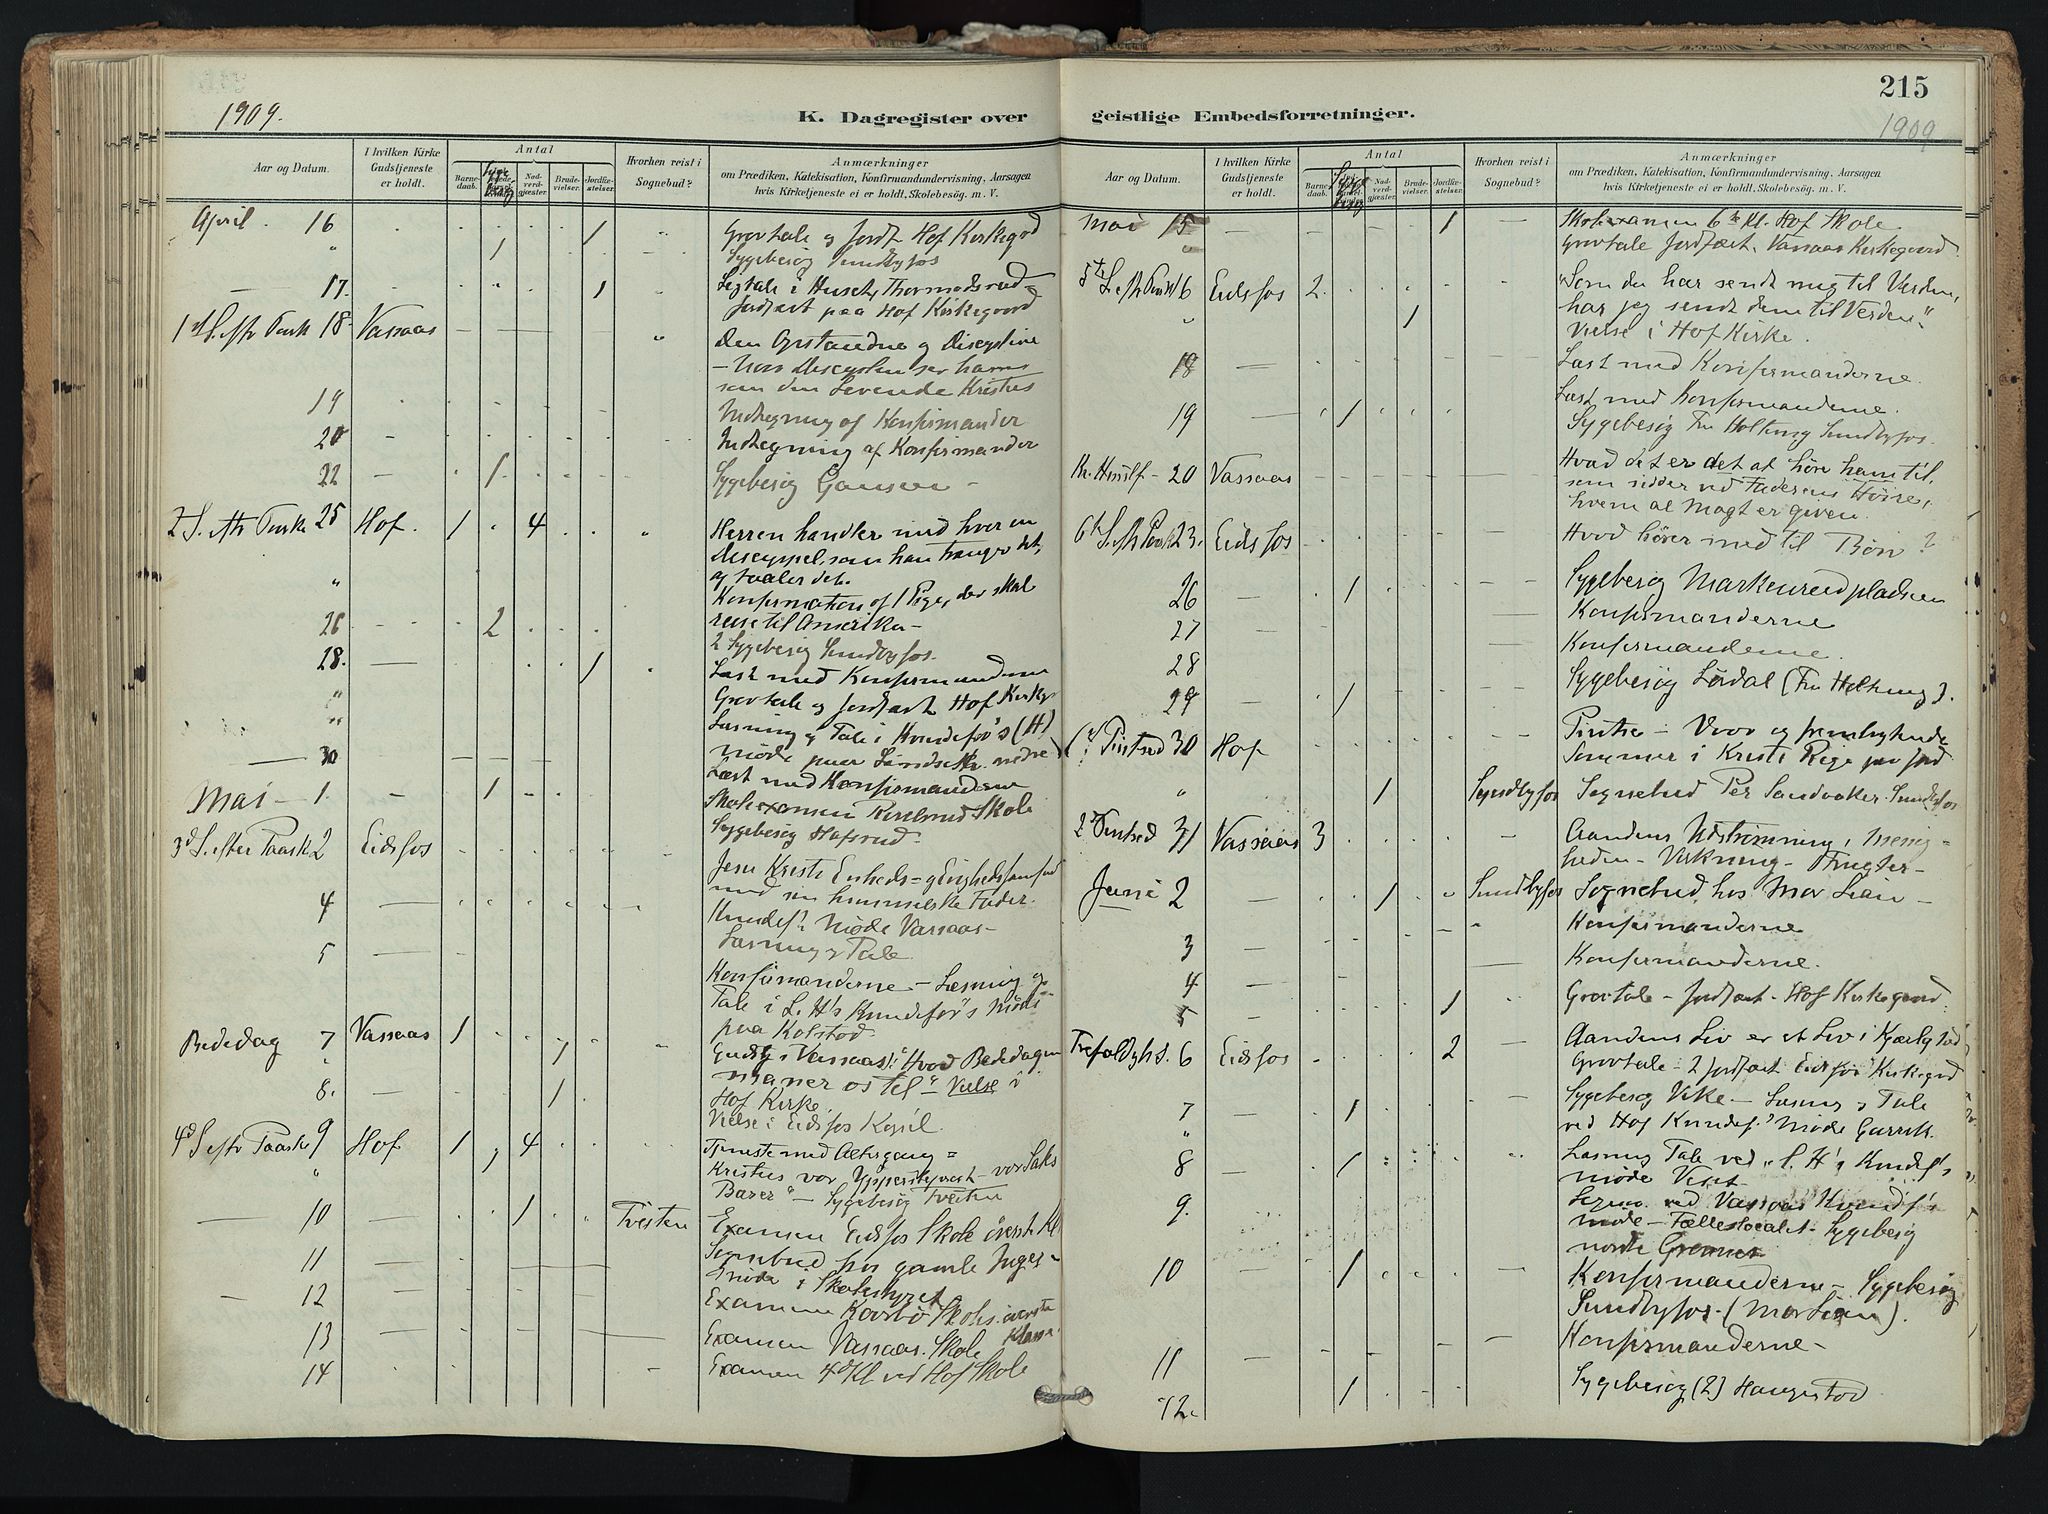 1909.
K. Dagregister over
Aar og Datum.
I hvilken Kirke Gudstjeneste er holdt.
Antal
Barnedaab.
Nadverdgjæster.
Brudevielser.
Jordfæstelser.
Hvorhen reist i Sognebud?
Anmærkninger
om Prædiken, Katekisation, Konfirmandundervisning, Aarsagen
hvis Kirketjeneste ei er holdt, Skolebesög. m. V.
April 16 1 Gravtale og Jordf. Hof Kirkegd
" 1 Sygebesøg Sundbyfos
17. 1 Ligtale i Huset, Thormodsrud
Jordfæst paa Hof Kirkegaard
1st S. eftr Paask 18 Vassaas Den Opstandne og Disciplene
som den Levende Kristus
19 Indtegning af Konfirmander
20 Indtegning af Konfirmander
22 1 Sygebesøg
2 S. eftr Paaske 25 Hof 1 4 Herren handler med hver en
Discippel, som han trænger det,
og taaler det.
" Konfirmation af 1 Pige, der skal
reise til Amerika
26 2 2 Sygebesøg Sundbyfos.
28. 1 Læst med Konfirmanderne
" Gravtale og Jordfæst Hof Kirkeg
" Læsning og Tale i Kvindefor's (H)
30 Møde paa
Læst med Konfirmanderne
Mai 1. 1 Skoleexamen Skole
Sygebesøg Hofsrud.
3d S. efter Paaske 2 Eidsfos Jesu Kristi Enheds=
med sin himmelske Fader.
4 Kvindef. Møde Vassaas
Læsning og Tale
5 Konfirmanderne - Læsning og
Tale i L. H's Kvindefor's Møde
paa Kolstad
Bededag 7 Vassaas 1 1 Gudstj. i Vassaas: "Hvad Bededagen
maner os til" Vielse i
Hof Kirke
8. 1 Vielse i Eidsfos Kapel.
4d S. eftr Paaske 9 Hof 1 4 Tjeneste med Altergang =
Kristus vor Ypperstepræst
" Sygebesøg Tveiten
10 1 Tveiten Examen Eidsfos Skole øverste Kl.
Sognebud hos gamle
11 Møde i Skolestyret
12 Examen Skole øverste
Klasse
13 Examen Vassaas Skole
14 Examen 4d Kl ved Hof Skole
215
1909
geistlige Embedsforretninger.
Aar og Datum.
I hvilken Kirke Gudstjeneste er holdt.
Antal
Barnedaab.
Nadverdgjæster.
Brudevielser.
Jordfæstelser.
Hvorhen reist i Sognebud?
Anmærkninger
om Prædiken, Katekisation, Konfirmandundervisning, Aarsagen
hvis Kirketjeneste ei er holdt, Skolebesög. m. V.
Mai 15 1 Skoleexamen 6te Kl. Hof Skole
" Gravtale Jordfæst. Vassaas Kirkegaard
5te S. eftr Paask 16 Eidsfos 2 "Som du har sendt mig til Verden,
har jeg sendt dem til Verden"
" 1 Vielse i Hof Kirke.
18 Læst med Konfirmanderne.
19 1 Læst med Konfirmanderne.
Sygebesøg Fru Holtung Sundbyfos.
Kr. Himlf 20 Vassaas Hvad det er det at høre ham til,
som sidder ved Faderens Høire,
hvem al Magt er given.
6te S. eftr Paask 23. Eidsfos Hvad hører med til Bøn?
26 1 Sygebesøg
27 Konfirmanderne
28 Konfirmanderne.
29 1 Sygebesøg (Fru Holtung).
1st Pintsed 30 Hof Pintse - Vaar og frembrydende
Sommer i Kristi Rige paa Jord
" 1 Sundbyfos Sognebud Per Sandaaker Sundbyfos
2d Pintsed 31 Vassaas 3 Aandens Udstrømning, Menig=
heden - Virkning - Frugter -
Juni 2 1 Sundbyfos Sognebud hos Mor Lian
3 Konfirmanderne
4 Konfirmanderne.
5 1 Gravtale - Jordfæst - Hof Kirkegaard
Trefoldighd. 6 Eidsfos 2 Aandens Liv er et Liv i Kjærlighed
Gravtale - 2 Jordfæst Eidsfos Kirkegrd
7 1 Sygebesøg Vike - Læsning og Tale
" ved Hof Kvindef.' Møde
8 1 Læsning Tale ved "L. H's Kvindef's
Møde
9. ved Vassaas Kvindf's
Møde - Fælleslocalet - Sygebesøg
nordre
10 1 Konfirmanderne - Sygebesøg
Sundbyfos. (Mor Lian).
11 Konfirmanderne -
12. 1 Sygebesøg (2) Haugestad